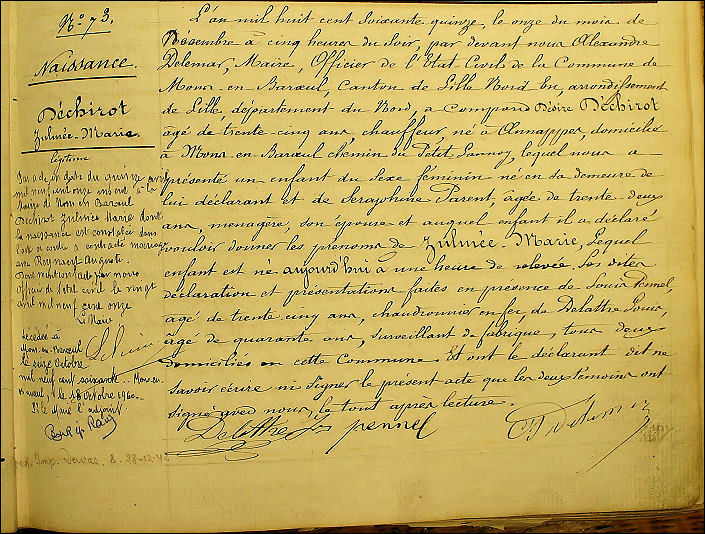 N° 73.
Naissance.
Déchirot
Zulmée-Marie.
légitime
Par acte en date du quinze avril
mil neuf cent onze inscrit à la
Mairie de Mons en Barœul
Déchirot Zulmée Marie dont
la naissance est constatée dans
l'acte ci contre a contracté mariage
avec Reynaert Auguste.
Pour mention faite par nous
Officier de l'état civil le vingt
avril mil neuf cent onze
Le Maire
Décédée à
Mons-en-Barœul
le onze Octobre
mil neuf cent soixante. Mons-en-
Barœul, le 18 Octobre 1960.
le Maire l'adjoint
L'an mil huit cent soixante quinze, le onze du mois de
Décembre à cinq heures du soir, par devant nous Alexandre
Delemar, Maire, Officier de l'Etat Civil de la Commune de
Mons-en-Barœul, Canton de Lille Nord Est, arrondissement
de Lille, département du Nord, a comparu Désire Déchirot
âgé de trente-cinq ans, chauffeur, né à Annappes, domicilié
à Mons en Barœul chemin du Petit Lannoy, lequel nous a
présenté un enfant du sexe féminin né en sa demeure de
lui déclarant et de Seraphine Parent, âgée de trente-deux
ans, menagère, son épouse et auquel enfant il a déclaré
vouloir donner les prénoms de Zulmée-Marie, Lequel
enfant est né aujourd'hui à une heure de relevée. Les dites
déclaration et présentations faites en présence de Louis Pennel,
âgé de trente cinq ans, chaudronnier en fer de Delattre Louis,
âgé de quarante ans, surveillant de fabrique, tous deux
domiciliés en cette Commune. Et ont le déclarant dit ne
savoir écrire ni signer le présent acte que les deux témoins ont
signé avec nous, le tout après lecture.
Delattre Ls pennel